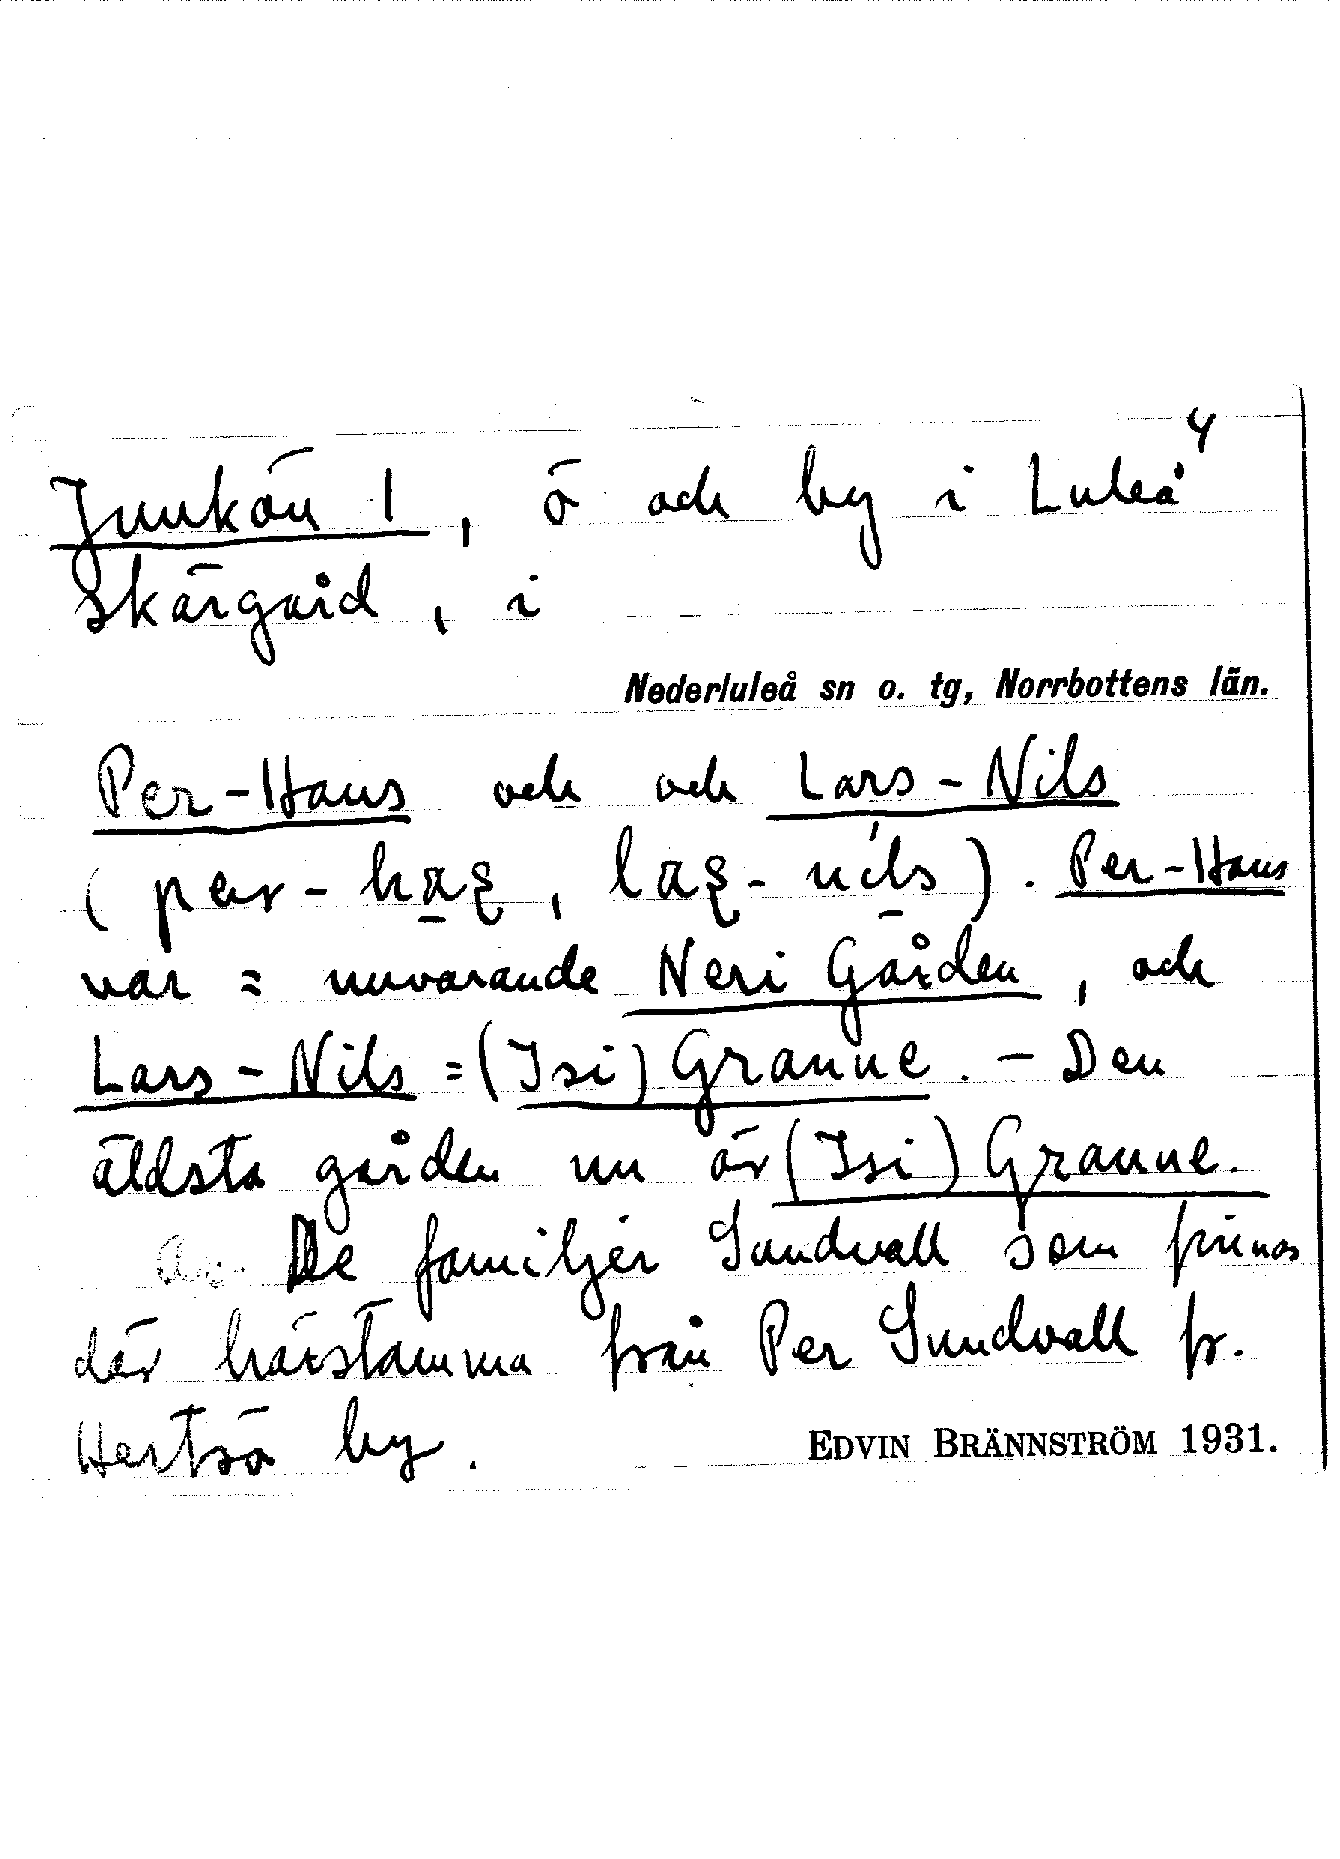 4
Junkön 1, ö och by i Luleå
skärgård, i
Nederluleå sn o. tg, Norrbottens län.
Per-Hans och och Lars-Nils
(per-, -nils). Per-Hans
var = nuvarande Neri Gården, och
Lars-Nils = (Isi) Granne. – Den
äldsta gården nu är (Isi) Granne.
De familjer Sundvall som finnas
där härstamma från Per Sundvall fr.
Hertsö by.
EDVIN BRÄNNSTRÖM 1931.